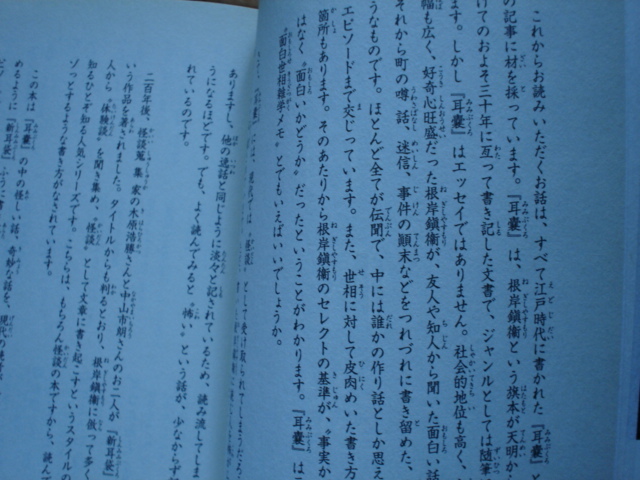 これからお読みいただくお話は、すべて江戸時代に書かれた『耳嚢』と
の記事に材を採っています。『耳嚢』は、根岸鎭衛という旗本が天明から
けてのおよそ三十年に亙って書き記した文書で、ジャンルとしては随筆
ます。しかし『耳嚢』はエッセイではありません。社会的地位も高く、
幅も広く、好奇心旺盛だった根岸鎭衛が、友人や知人から聞いた面白い話
それから町の噂話、迷信、事件の顛末などをつれづれに書き留めた、
うなものです。ほとんど全てが伝聞で、中には誰かの作り話としか思え
エピソードまで交じっています。また、世相に対して皮肉めいた書き方
箇所もあります。そのあたりから根岸鎭衛のセレクトの基準が、“事実か
はなく“面白いかどうか”だったということがわかります。『耳嚢』は
“面白世相雑学メモ”とでもいえばいいでしょうか。
『耳嚢』には、として受け取られてしまうだろう
ありますし、他の逸話と同じように淡々と記されているため、読み流してしま
うになるほどです。でも、よく読んでみると“怖い”という話が、少なからず
れているのです。
二百年後、怪談蒐集家の木原浩勝さんと中山市朗さんのお二人が『新耳袋』
いう作品を著されました。タイトルからも判るとおり、根岸鎭衛に倣って多く
人から“体験談”を聞き集め、“怪談”として文章に書き起こすというスタイルの
知るひとぞ知る人気シリーズです。こちらは、もちろん怪談の本ですから、読んで
ゾっとするような書き方がなされています。
この本は『耳嚢』の中の怪しい話、奇妙な話を、現代の
めるように『新耳袋』ふうに書